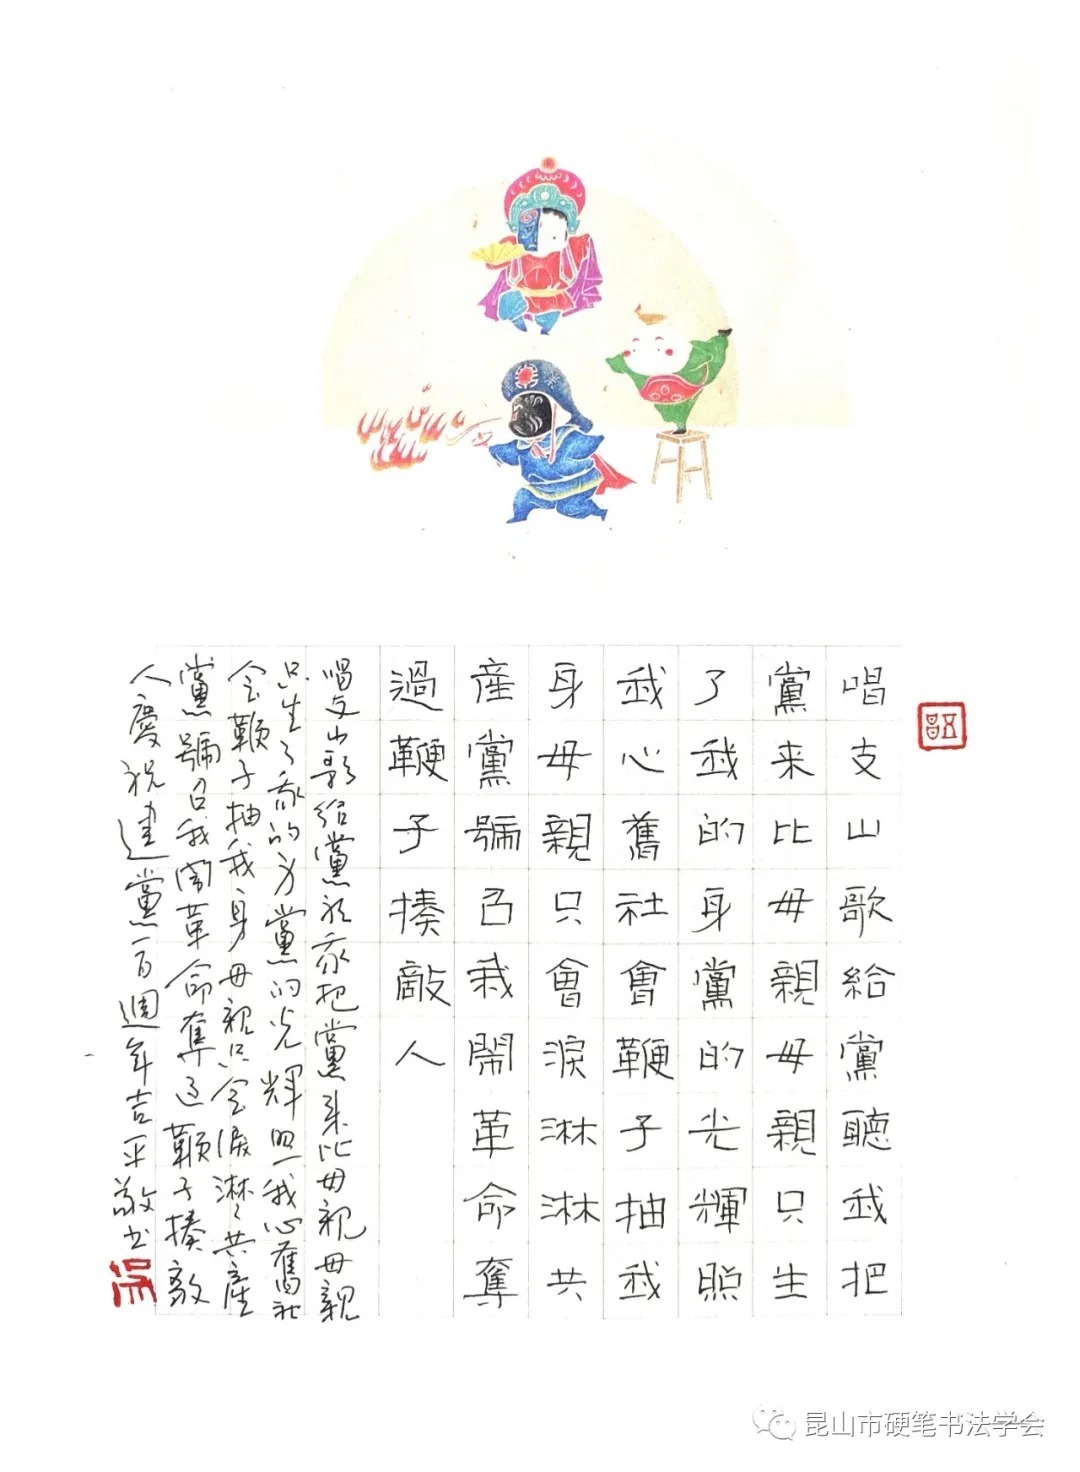 唱支山歌給黨聽我把
黨来比母親母親只生
了我的身黨的光輝照
我心舊社會鞭子抽我
身母親只會淚淋淋共
産黨號召我鬧革命奪
過鞭子揍敵人
唱支山歌給黨聽我把黨來比母親母親
只生了我的身黨的光輝照我心舊社
会鞭子抽我身母親只会淚淋々共産
黨號召我鬧革命奪过鞭子揍敵
人慶祝建黨百週年吉平敬书
昆山市硬笔书法学会